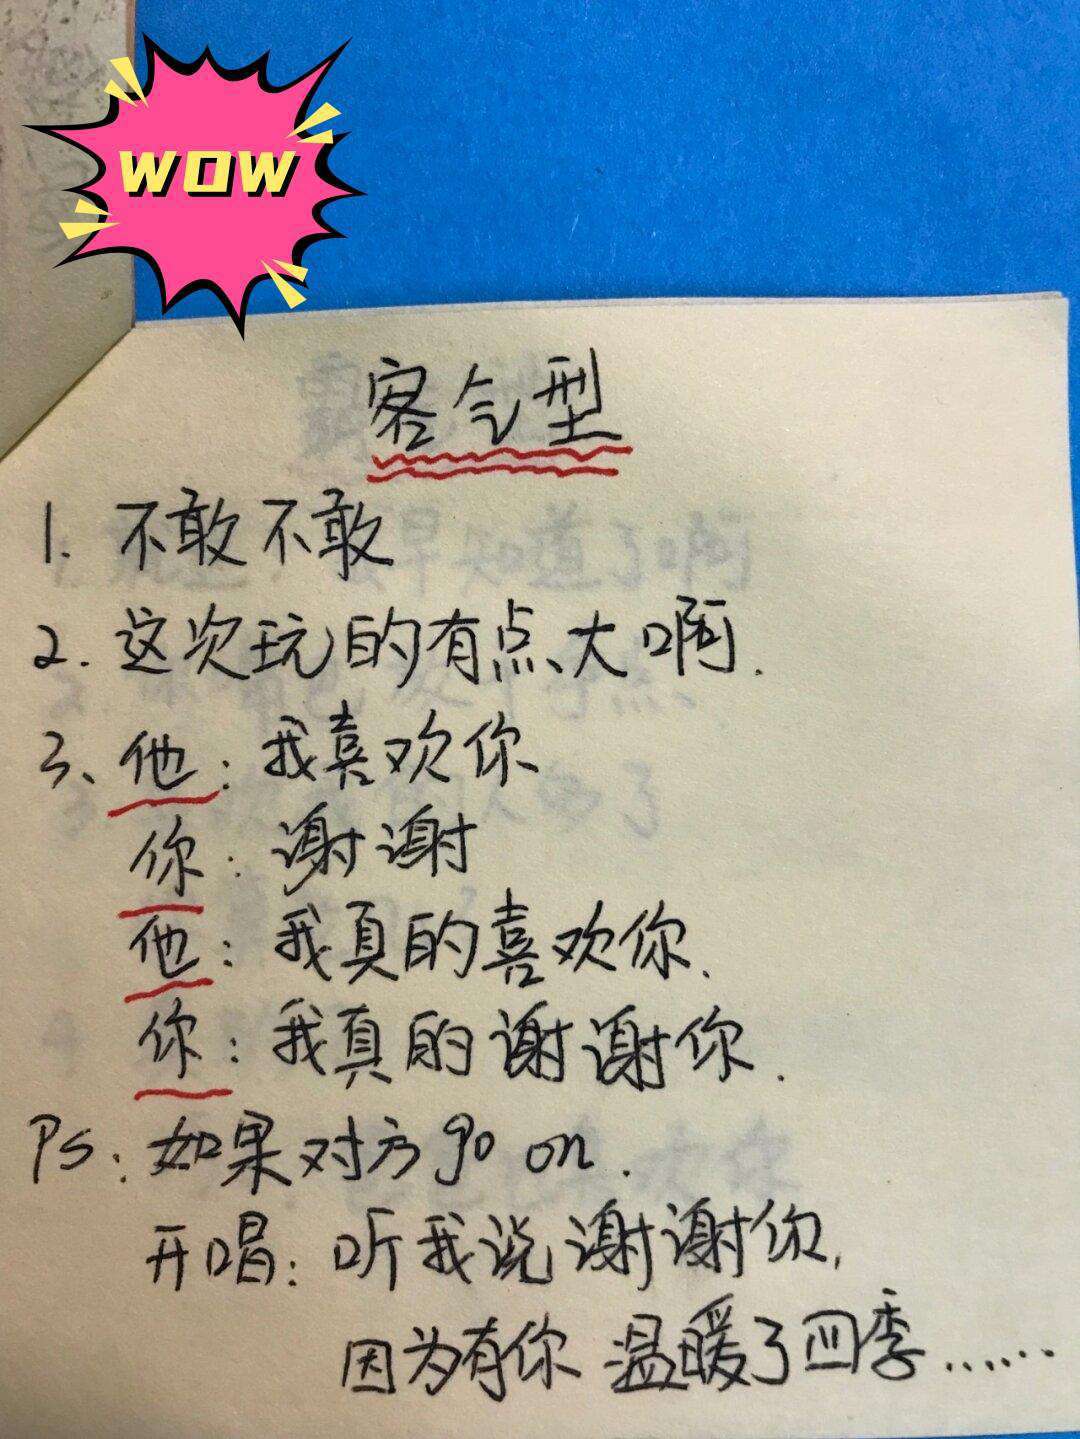 WOW
客气型
1. 不敢不敢
2. 这次玩的有点大啊.
3、他：我喜欢你
你：谢谢
他：我真的喜欢你.
你：我真的谢谢你.
Ps：如果对方go on.
开唱：听我说谢谢你,
因为有你 温暖了四季......